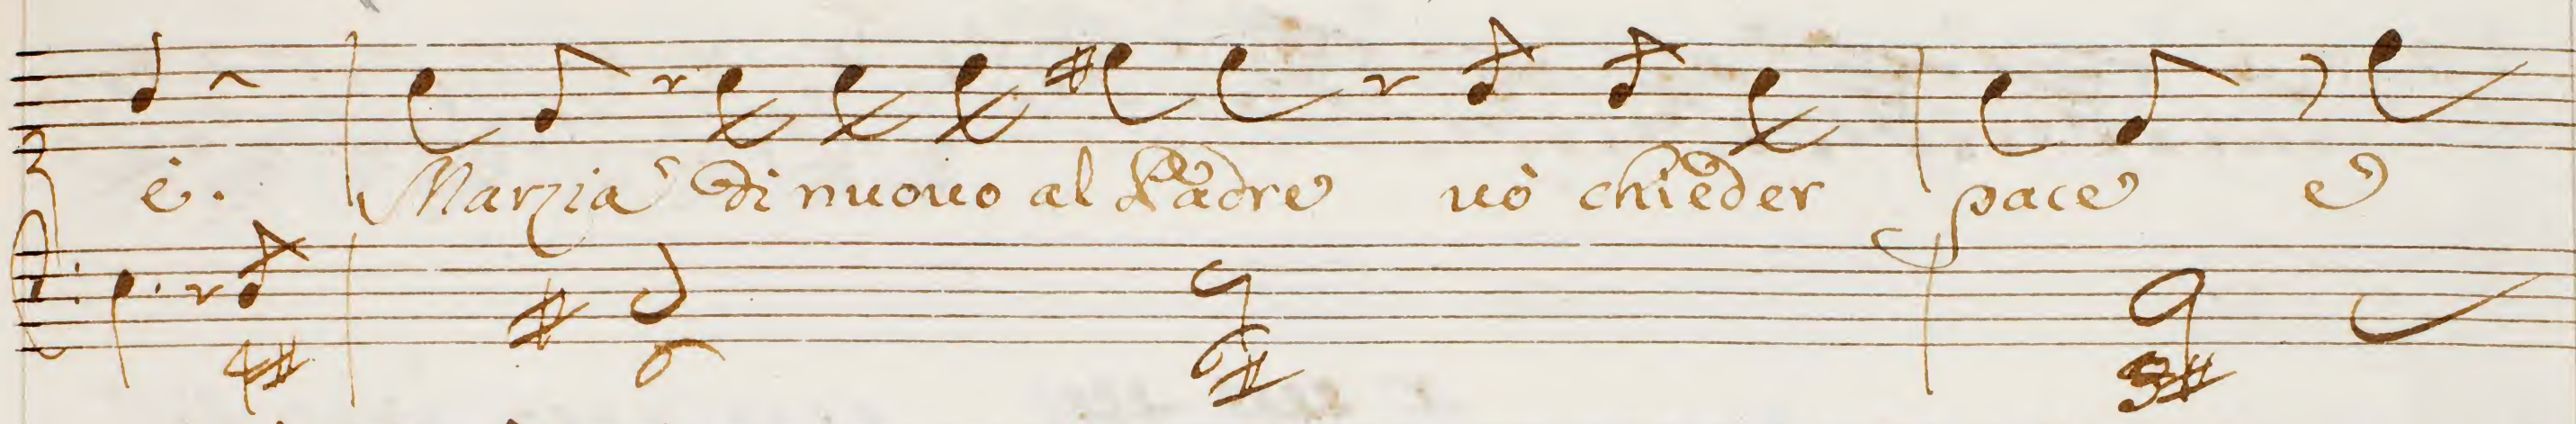 è. Marzia di nuouo al Padre uò chieder pace e
4# 6 6# 3#